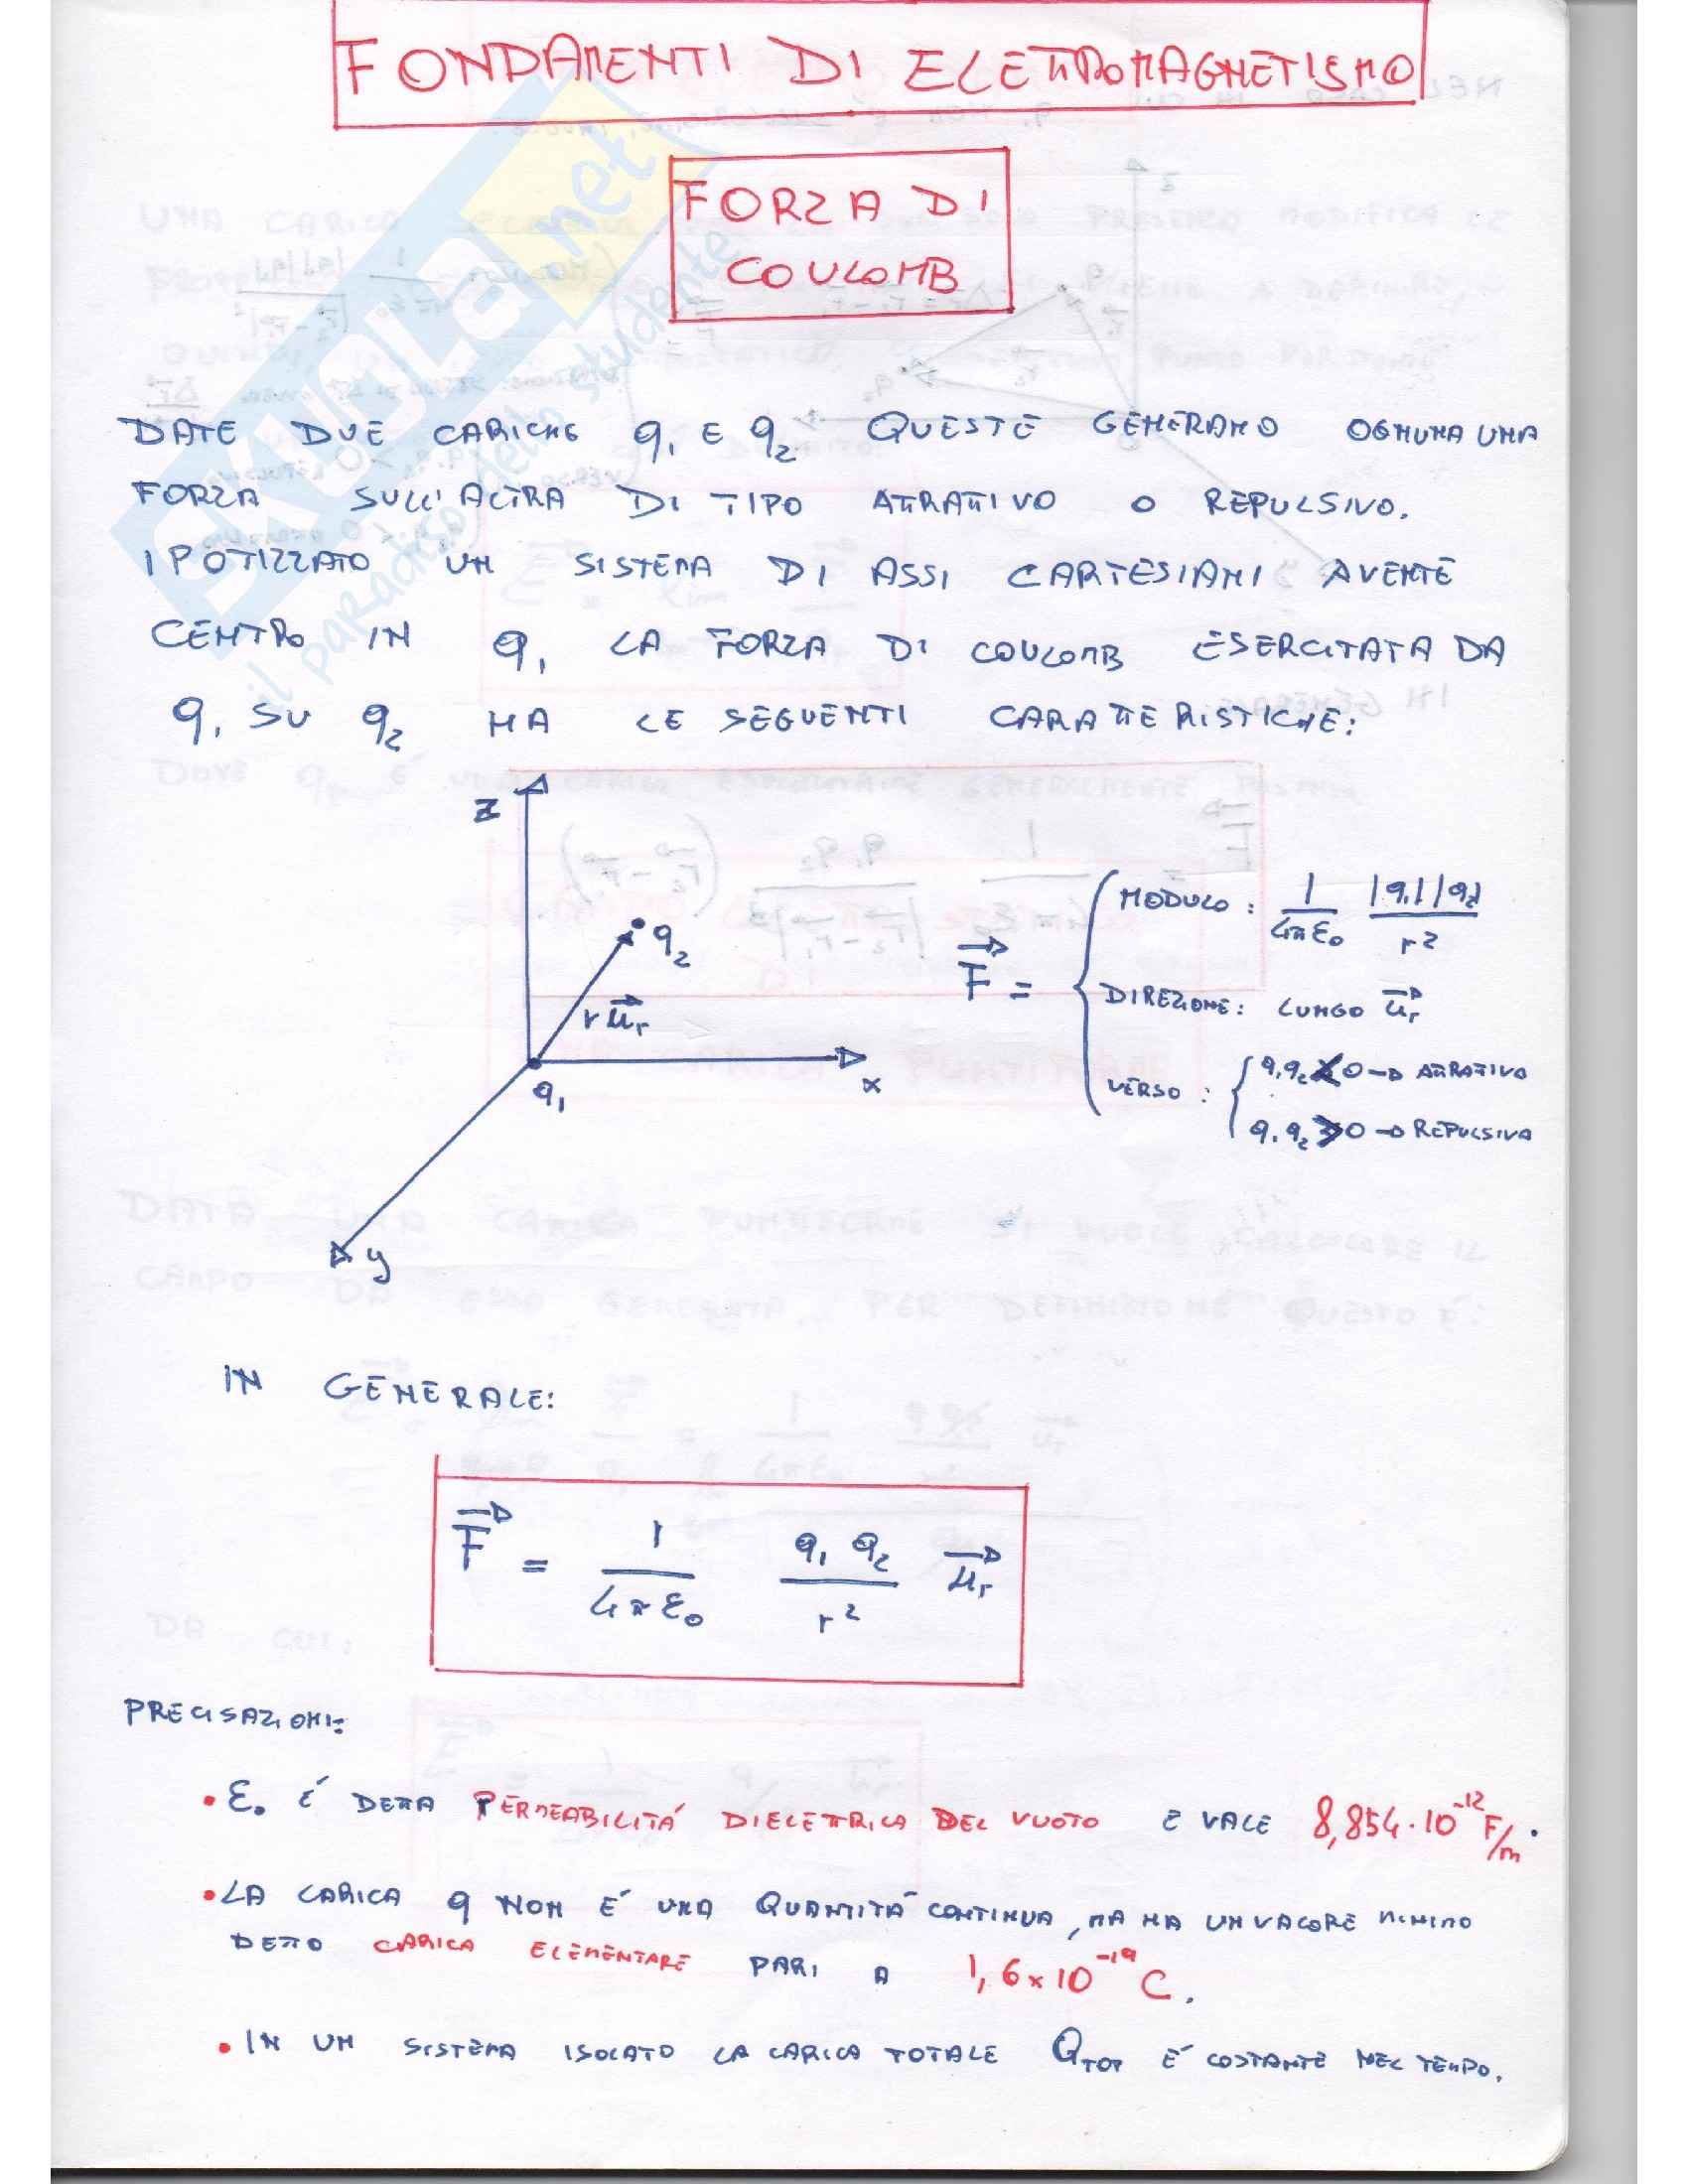 FONDAMENTI DI ELETTROMAGNETISMO
FORZA DI
COULOMB
DATE DUE CARICHE q₁ E q₂ QUESTE GENERANO OGNUNA UNA
FORZA SULL'ALTRA DI TIPO ATTRATTIVO O REPULSIVO.
IPOTIZZATO UN SISTEMA DI ASSI CARTESIANI AVENTE
CENTRO IN q₁ LA FORZA DI COULOMB ESERCITATA DA
q₁ SU q₂ HA LE SEGUENTI CARATTERISTICHE:
z
q₂
r u⃗ᵣ
q₁
x
y
F⃗ =
MODULO: 1/(4πε₀) |q₁||q₂|/r²
DIREZIONE: LUNGO u⃗ᵣ
VERSO:
q₁q₂ < 0 → ATTRATTIVO
q₁q₂ > 0 → REPULSIVA
IN GENERALE:
F⃗ = 1/(4πε₀) q₁ q₂/r² u⃗ᵣ
PRECISAZIONI:
• ε₀ É DETTA PERMEABILITÁ DIELETTRICA DEL VUOTO E VALE 8,854·10⁻¹² F/m.
• LA CARICA q NON É UNA QUANTITÁ CONTINUA, MA HA UN VALORE MINIMO
DETTO CARICA ELEMENTARE PARI A 1,6×10⁻¹⁹ C.
• IN UN SISTEMA ISOLATO LA CARICA TOTALE Q_TOT É COSTANTE NEL TEMPO.
SKUOLA.net
il paradiso dello studente